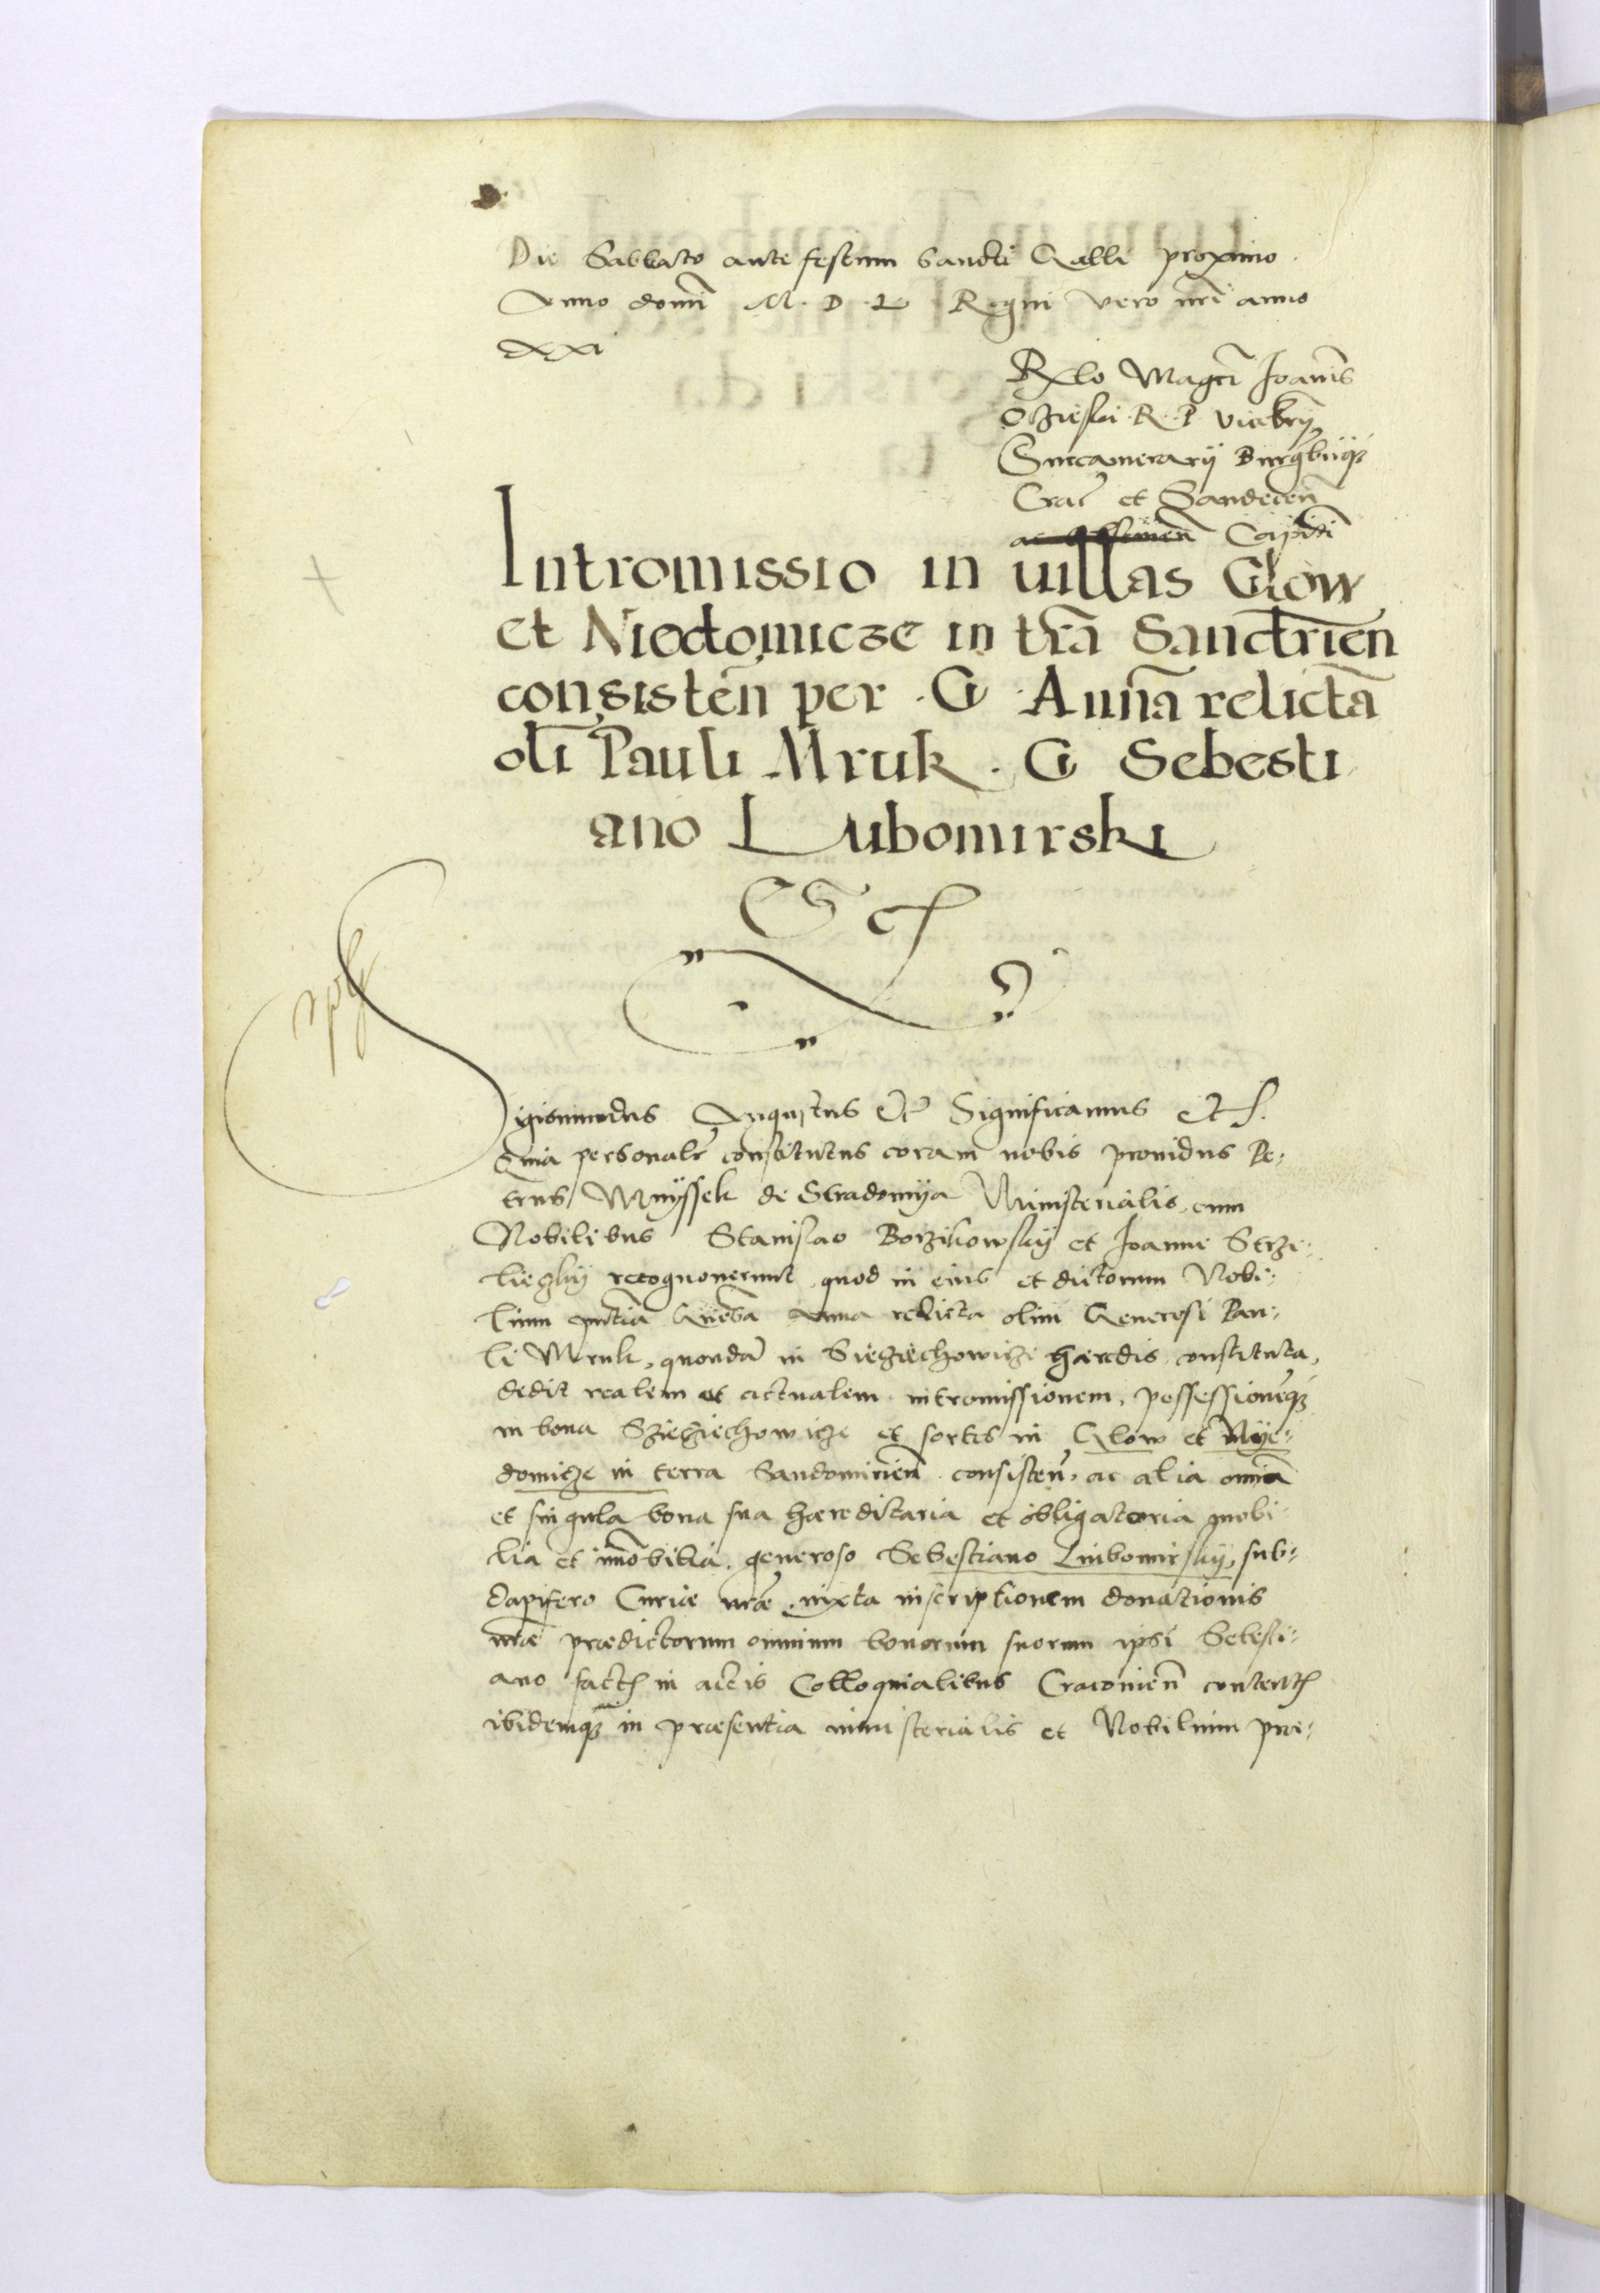 Die Sabbato ante festum Sancti Galli proximo
Anno domi M · D · L Regni vero nri anno
XXI
Rlo Magci Joannis
Oczieski R · P Vicekrij
Succamerarij Burgbiiqz
Crac et Sandecen
Capiti
Intromissio in uillas Glow
et Niedomicze in tra Sanctrien
consisten per · G · Anna relicta
oli Pauli Mruk · G Sebesti
ano Lubomirski
Sigismundus Augustus Etc Significamus Etc.
Quia personalr constitutus coram nobis prouidus Pe:
trus Mnyssek de Stradomya Ministerialis, cum
Nobilibus Stanislao Borzikowskij et Joanne Strze:
lieczkij recognouerunt, quod in eius et dictorum Nobi:
lium pntia Gnosa Anna relicta olim Generosi Pau:
li Mruk, quonda in Sieciechowicze haeredis constituta,
dedit realem et actualem intromissionem, possessioneqz
in bona Szieciechowicze et sortes in Glow et Nye:
domicze in terra Sandomirien consisten, ac alia omia
et singula bona sua haereditaria et obligatoria mobi:
lia et imobilia, generoso Sebestiano Lubomirskij, sub:
dapifero Curiae nrae, iuxta inscriptionem donationis
nrae praedictorum omnium bonorum suorum ipsi Sebesti:
ano fact in actis Colloquialibus Cracouien content
ibidemqz in praesentia ministerialis et Nobilium prae: